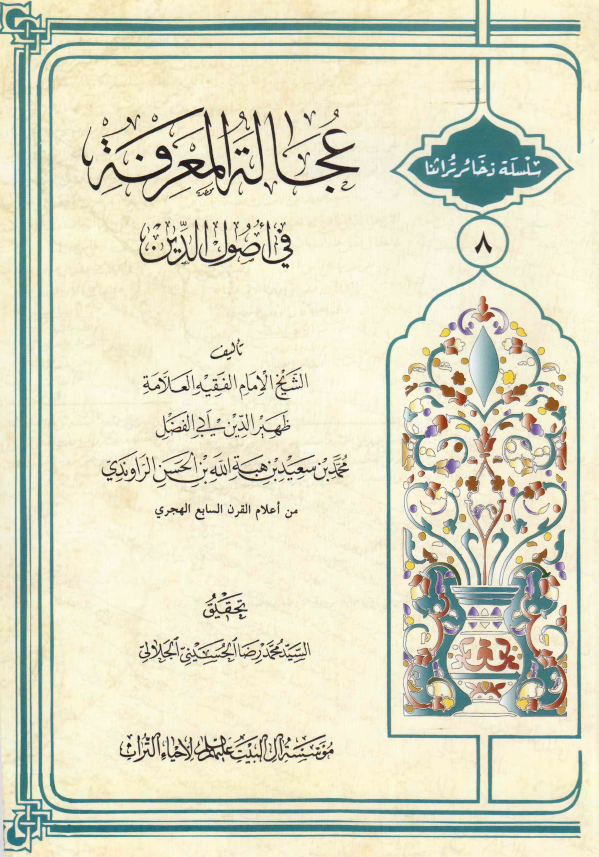 سلسلة ذخائر تراثنا
٨
عُجالة المعرفة
في أصول الدين
تأليف
الشيخ الإمام الفقيه العلامة
ظهير الدين أبي الفضل
محمد بن سعيد بن هبة الله بن الحسن الراوندي
من أعلام القرن السابع الهجري
تحقيق
السيد محمد رضا الحسيني الجلالي
مؤسسة آل البيت عليهم السلام لإحياء التراث